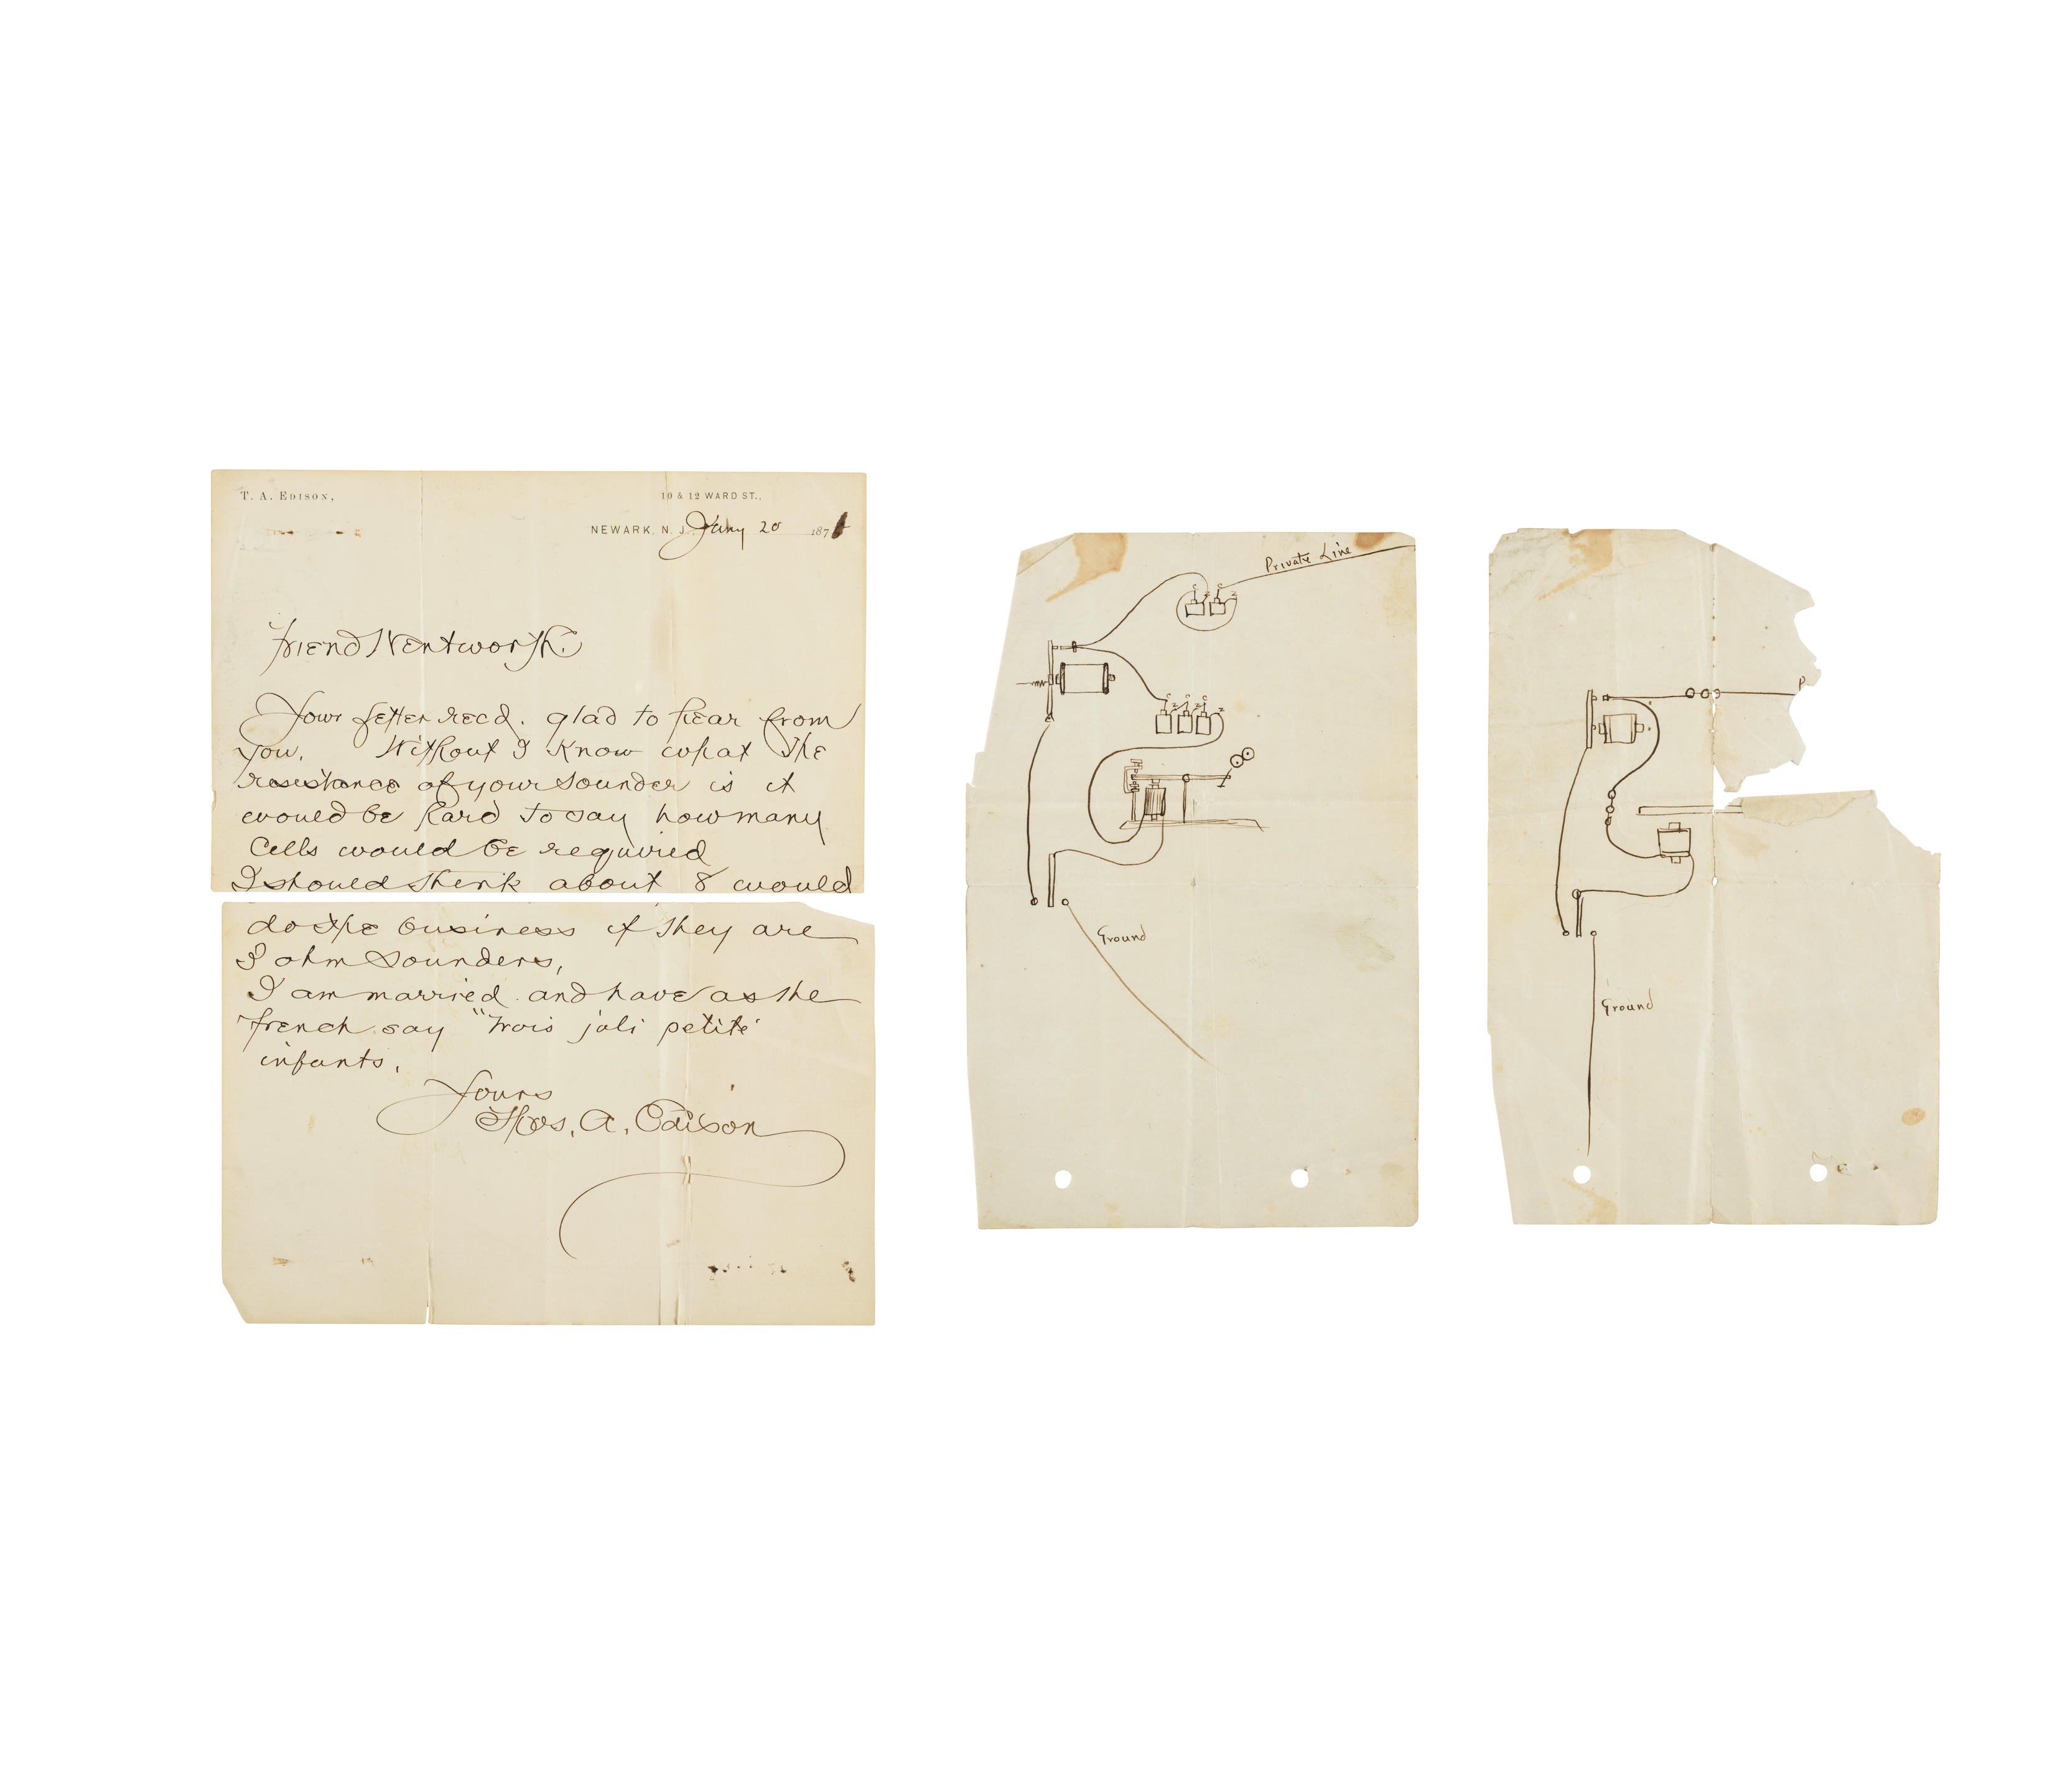 T. A. EDISON,
10 & 12 WARD ST.,
NEWARK, N. J. Jany 20 187
Friend Wentworth.
Your letter recd. glad to hear from
you. Without I know what the
resistance of your sounder is it
would be hard to say how many
Cells would be required
I should think about 8 would
do the business if they are
3 ohm sounders,
I am married and have as the
french say "trois joli petite
infants.
Yours
Thos. A. Edison
Private Line
c c
z z
c c c
z z z
Ground
P
Ground